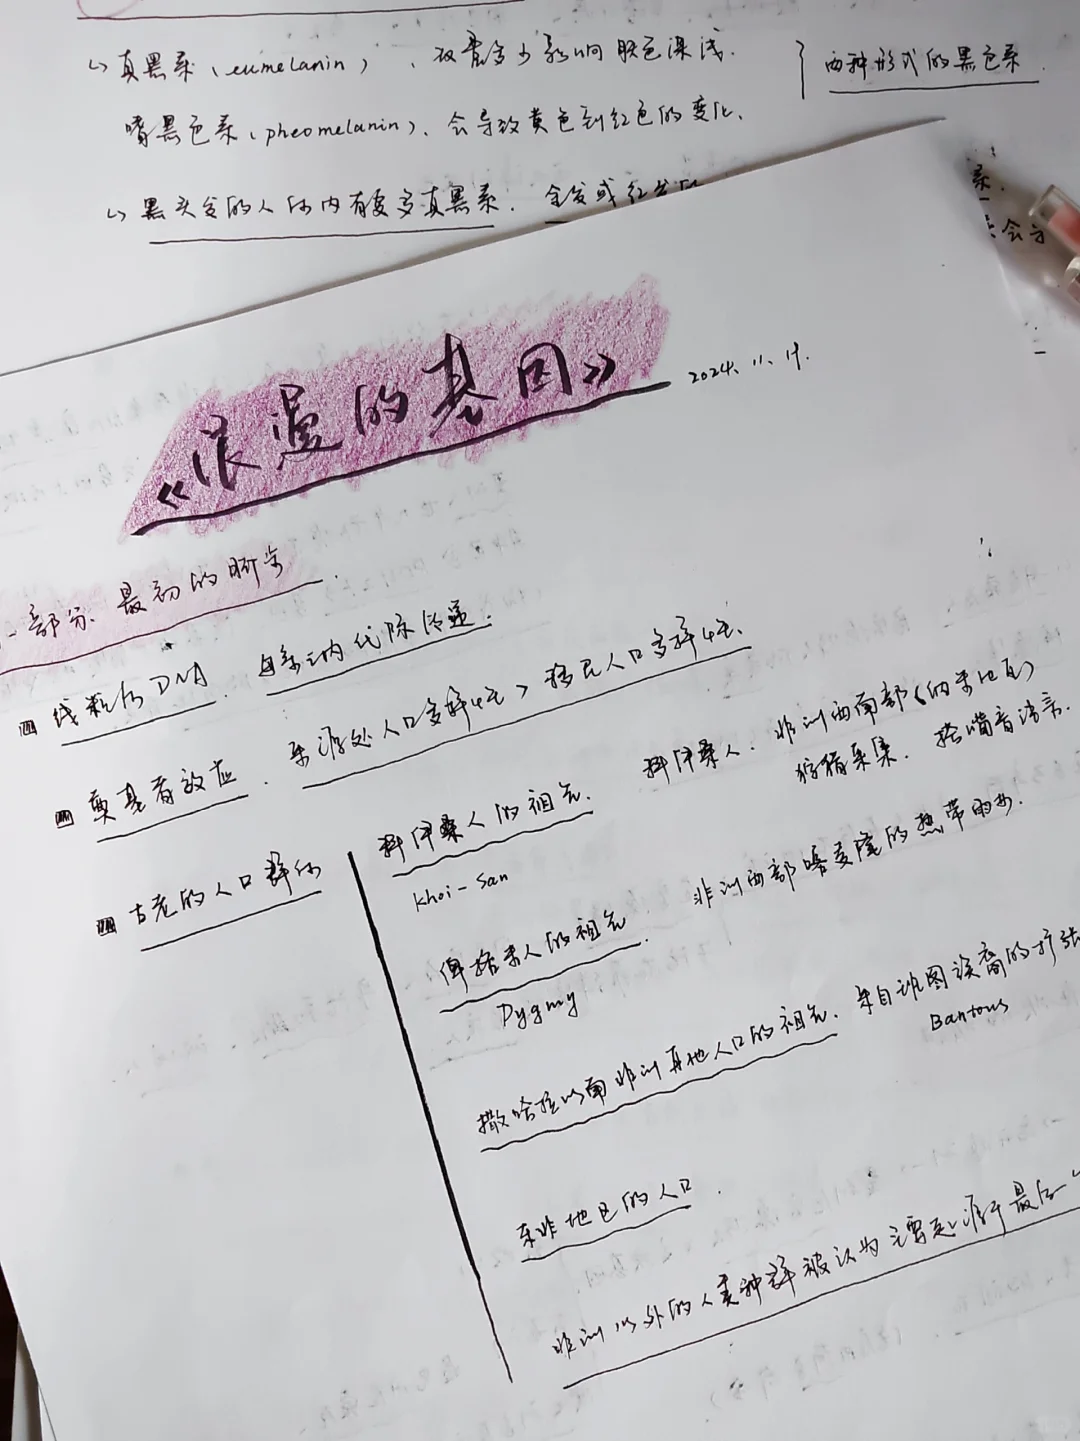 ↳ 真黑素（eumelanin），含量多少影响肤色深浅.
嗜黑色素（pheomelanin）、会导致黄色到红色的变化.
两种形式的黑色素.
↳ 黑头发的人体内有更多真黑素. 金发或红发的
素.
会
《浪漫的基因》
2024. 11. 19.
一部分. 最初的脚步.
线粒体DNA. 母系之内代际传递.
奠基者效应. 来源处人口多样性 > 移民人口多样性.
古老的人口群体
科伊桑人的祖先.
Khoi-San
科伊桑人. 非洲西南部（纳米比亚）
狩猎采集. 搭嘴音语言.
俾格米人的祖先.
Pygmy
非洲西部喀麦隆的热带雨林.
撒哈拉以南非洲其他人口的祖先. 来自班图族裔的扩张
Bantous
东非地区的人口.
非洲以外的人类种群被认为主要起源于最后一